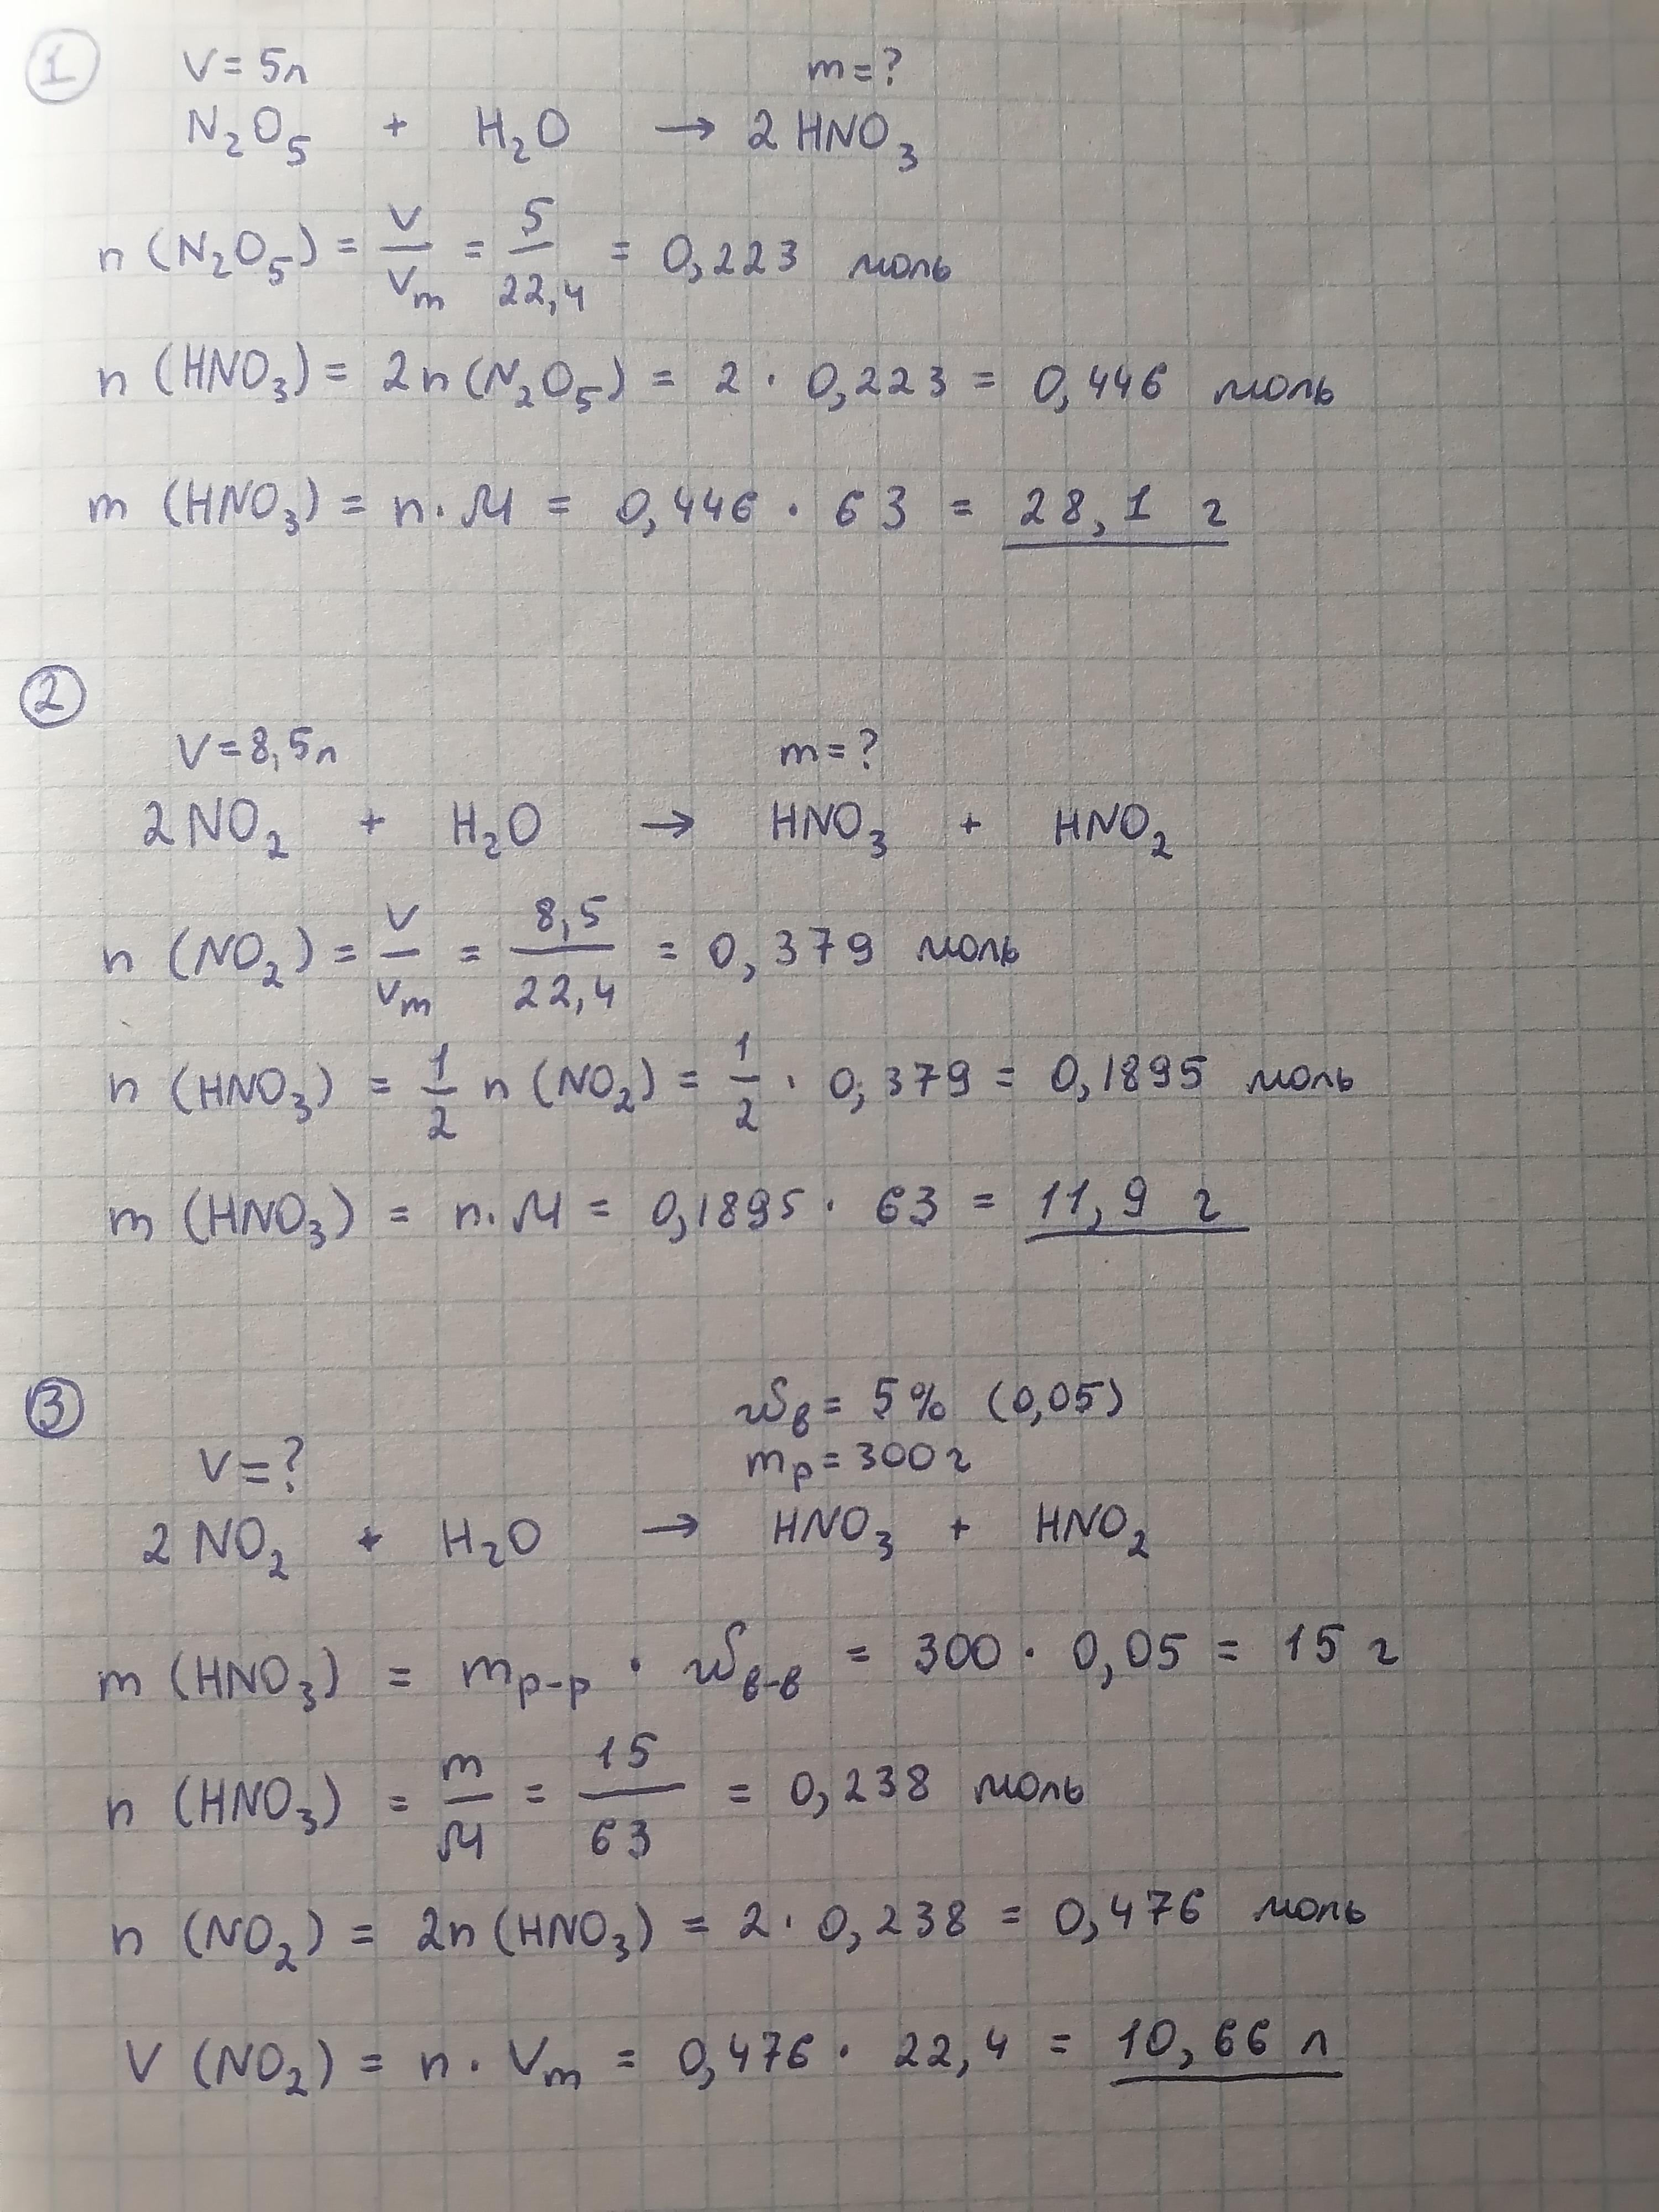 1
V = 5л m = ?
N₂O₅ + H₂O → 2 HNO₃
n (N₂O₅) = V/Vm = 5/22,4 = 0,223 моль
n (HNO₃) = 2n(N₂O₅) = 2 · 0,223 = 0,446 моль
m (HNO₃) = n · M = 0,446 · 63 = 28,1 г
2
V = 8,5л m = ?
2 NO₂ + H₂O → HNO₃ + HNO₂
n (NO₂) = V/Vm = 8,5/22,4 = 0,379 моль
n (HNO₃) = 1/2 n (NO₂) = 1/2 · 0,379 = 0,1895 моль
m (HNO₃) = n · M = 0,1895 · 63 = 11,9 г
3
ωв = 5% (0,05)
V = ? mр = 300г
2 NO₂ + H₂O → HNO₃ + HNO₂
m (HNO₃) = mр-р · ωв-в = 300 · 0,05 = 15 г
n (HNO₃) = m/M = 15/63 = 0,238 моль
n (NO₂) = 2n (HNO₃) = 2 · 0,238 = 0,476 моль
V (NO₂) = n · Vm = 0,476 · 22,4 = 10,66 л